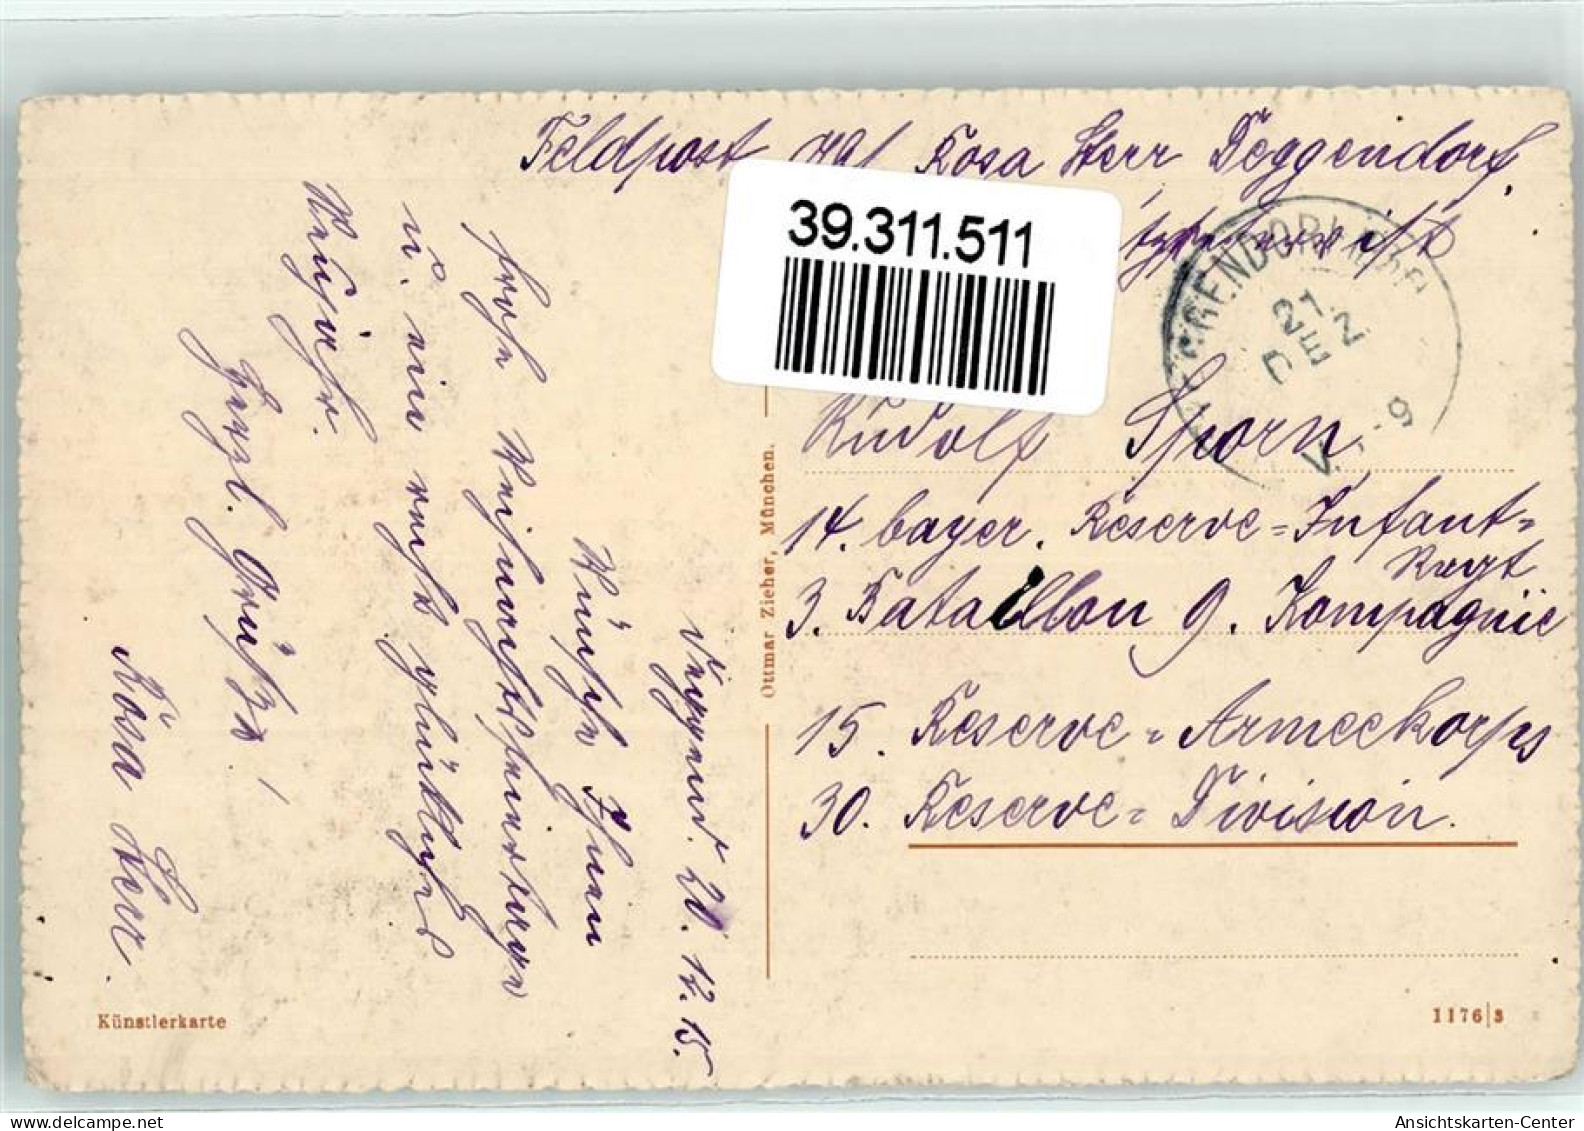 Feldpost Rosa Herr Deggendorf,
39.311.511
DEGGENDORF
21.
DEZ.
V. 8-9
Rudolf Sporn
14. bayer. Reserve=Infant=
Regt
3. Bataillon 9. Kompagnie
15. Reserve=Armeekorps
30. Reserve=Division.
Deggend. 20. 12. 15.
Wünsche Ihnen
frohe Weihnachtsfeiertage
u. ein recht glückliches
Neujahr.
Herzl. Grüße!
Rosa Herr.
Ottmar Zieher, München.
Künstlerkarte
1176|3
delcampe.net
Ansichtskarten-Center